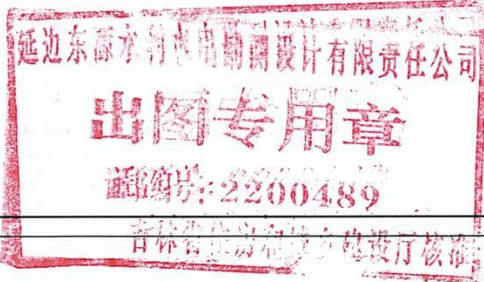 延边东源水利水电勘测设计有限责任公司
出图专用章
证书编号:2200489
吉林省住房和城乡建设厅核准